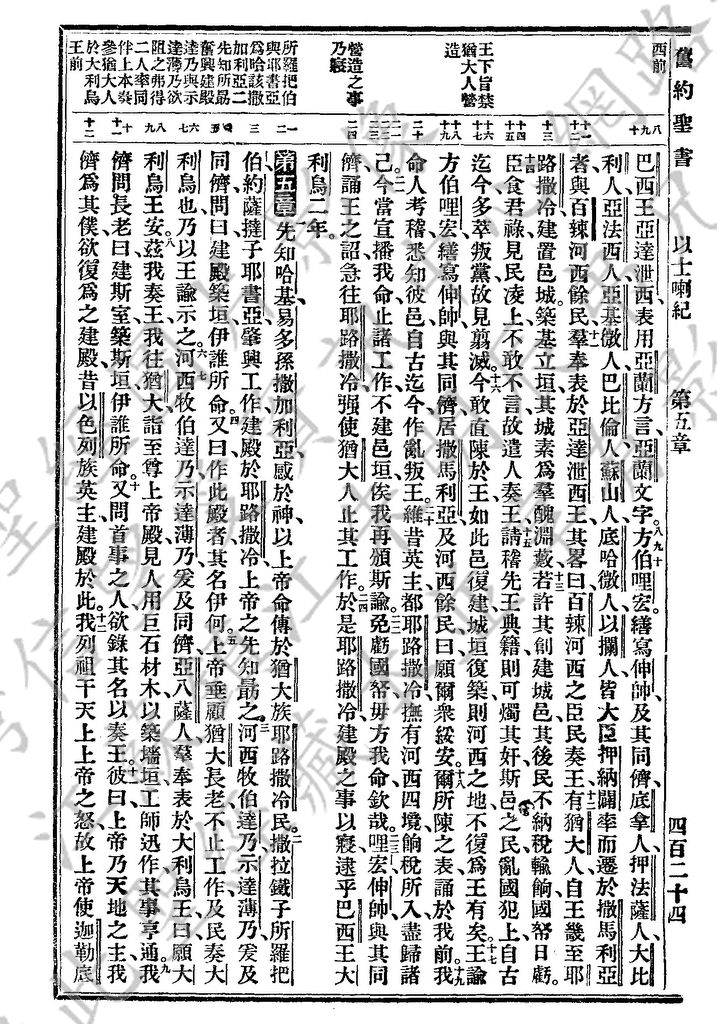 舊約聖書
以士喇紀
第五章
四百二十四
西前
王下旨禁
猶大人營
造
營造之事
乃寢
所羅把伯
與耶書亞
為哈該撒
加利亞二
先知所勗
奮興建殿
達乃與示
達薄乃欲
阻之弗得
二人率同
伴上本奏
參猶大人
於大利烏
王前
巴西王亞達泄西表用亞蘭方言亞蘭文字方伯哩宏繕寫伸帥及其同儕底拿人押法薩人大比
利人亞法西人亞基衞人巴比倫人蘇山人底哈微人以攔人皆大臣押納闢率而遷於撒馬利亞
者與百辣河西餘民羣奉表於亞達泄西王其畧曰百辣河西之臣民奏王有猶大人自王畿至耶
路撒冷建置邑城築基立垣其城素為羣醜淵藪若許其創建城邑其後民不納稅輸餉國帑日虧
臣食君祿見民凌上不敢不言故遣人奏王請稽先王典籍則可燭其奸斯邑之民亂國犯上自古
迄今多萃叛黨故見翦滅今敢直陳於王如此邑復建城垣復築則河西之地不復為王有矣王諭
方伯哩宏繕寫伸帥與其同儕居撒馬利亞及河西餘民曰願爾衆綏安爾所陳之表誦於我前我
命人考稽悉知彼邑自古迄今作亂叛王維昔英主都耶路撒冷撫有河西四境餉稅所入盡歸諸
己今當宣播我命止諸工作不建邑垣俟我再頒斯諭免虧國帑毋方我命欽哉哩宏伸帥與其同
儕誦王之詔急往耶路撒冷强使猶大人止其工作於是耶路撒冷建殿之事以寢逮乎巴西王大
利烏二年
第五章先知哈基易多孫撒加利亞感於神以上帝命傳於猶大族耶路撒冷民撒拉鐵子所羅把
伯約薩撻子耶書亞肇興工作建殿於耶路撒冷上帝之先知勗之河西牧伯達乃示達薄乃爰及
同儕問曰建殿築垣伊誰所命又曰作此殿者其名伊何上帝垂顧猶大長老不止工作及民奏大
利烏也乃以王諭示之河西牧伯達乃示達薄乃爰及同儕亞八薩人羣奉表於大利烏王曰願大
利烏王安茲我奏王我往猶大詣至尊上帝殿見人用巨石材木以築墻垣工師迅作其事亨通我
儕問長老曰建斯室築斯垣伊誰所命又問首事之人欲錄其名以奏王彼曰上帝乃天地之主我
儕為其僕欲復為之建殿昔以色列族英主建殿於此我列祖干天上上帝之怒故上帝使迦勒底